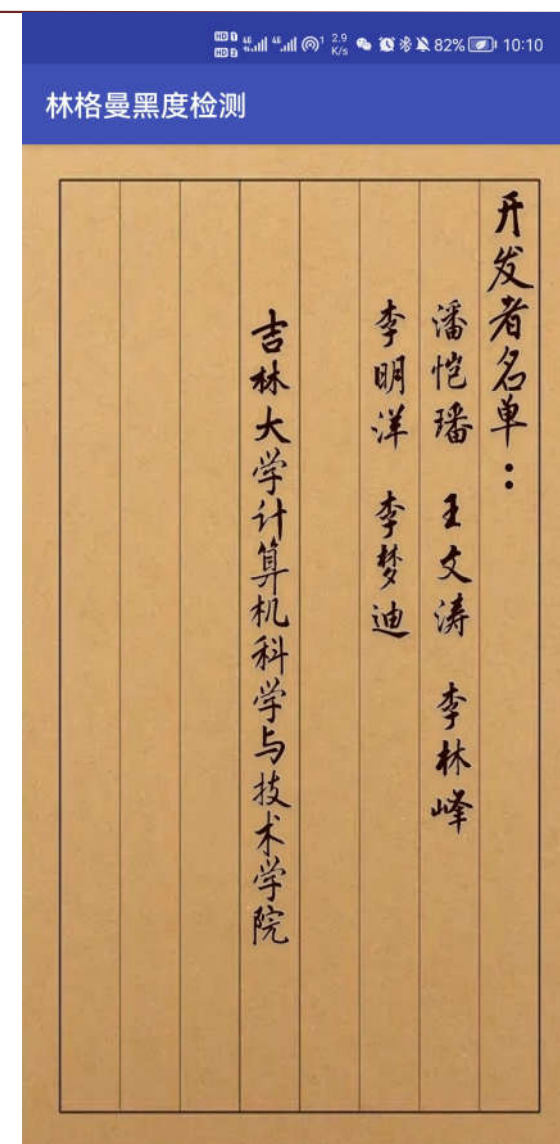 HD 1 HD 2 4G 4G 1 2.9 K/s 82% 10:10
林格曼黑度检测
开发者名单：
潘恺璠 王文涛 李林峰
李明洋 李梦迪
吉林大学计算机科学与技术学院